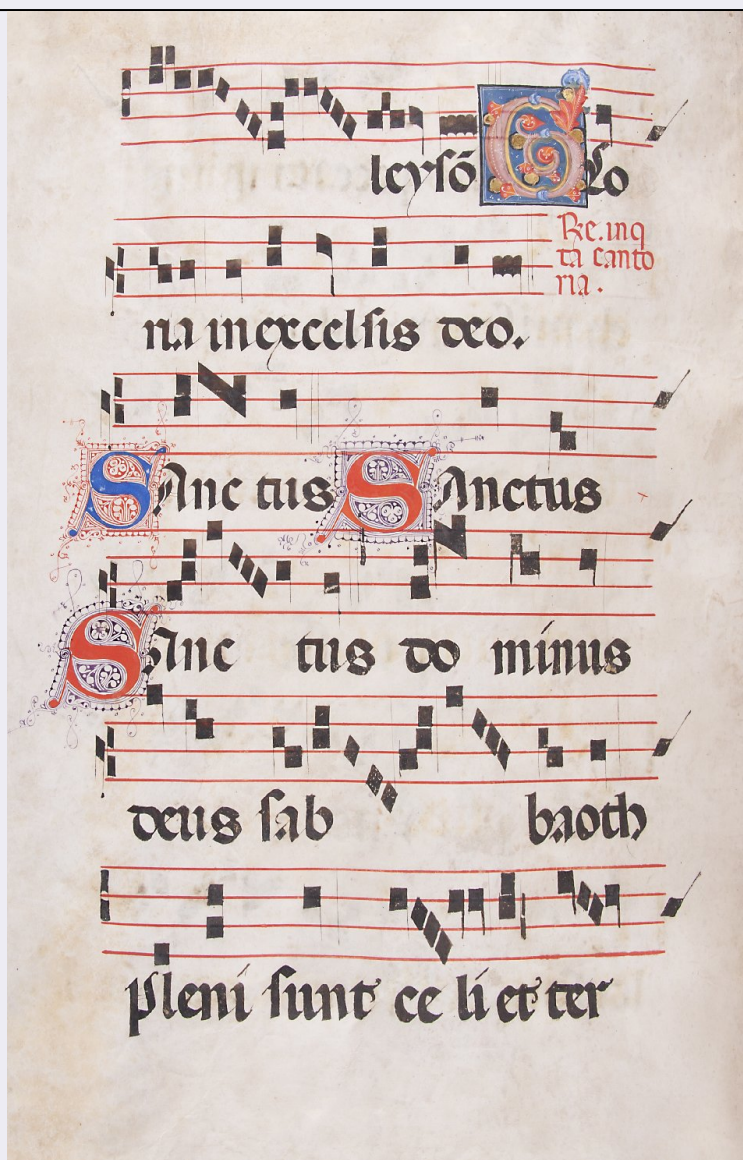 leysō Glo
Re. in q
ta canto
ria.
ria in excelsis deo.
Sanc tus Sanctus
Sanc tus do minus
deus sab baoth
Pleni sunt ce li et ter